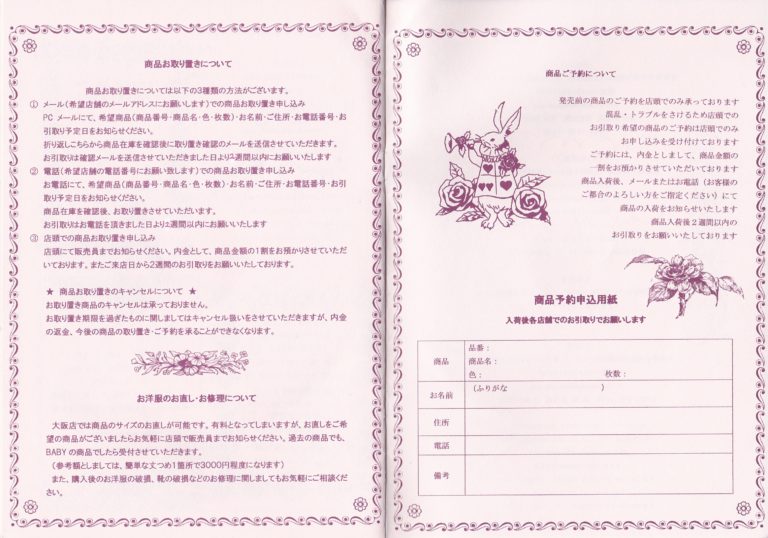 商品お取り置きについて
商品お取り置きについては以下の3種類の方法がございます。
① メール(希望店舗のメールアドレスにお願いします)での商品お取り置き申し込み
PC メールにて、希望商品(商品番号・商品名・色・枚数)・お名前・ご住所・お電話番号・お
引取り予定日をお知らせください。
折り返しこちらから商品在庫を確認後に取り置き確認のメールを送信させていただきます。
お引取りは確認メールを送信させていただきました日より2週間以内にお願いいたします
② 電話(希望店舗の電話番号にお願い致します)での商品お取り置き申し込み
お電話にて、希望商品(商品番号・商品名・色・枚数)・お名前・ご住所・お電話番号・お引
取り予定日をお知らせください。
商品在庫を確認後、お取置きさせていただいます。
お引取りはお電話を頂きました日より2週間以内にお願いいたします
③ 店頭での商品お取り置き申し込み
店頭にて販売員までお知らせください。内金として、商品金額の1割をお預かりさせていただ
いております。またご来店日から2週間のお引取りをお願いいたしております。
★ 商品お取り置きのキャンセルについて ★
お取り置き商品のキャンセルは承っておりません。
お取り置き期限を過ぎたものに関しましてはキャンセル扱いをさせていただきますが、内金
の返金、今後の商品の取り置き・ご予約を承ることができなくなります。
お洋服のお直し・お修理について
大阪店では商品のサイズのお直しが可能です。有料となってしまいますが、お直しをご希
望の商品がございましたらお気軽に店頭で販売員までお知らせください。過去の商品でも、
BABY の商品でしたら受付させていただきます。
(参考額としましては、簡単な丈つめ1箇所で3000円程度になります)
また、購入後のお洋服の破損、靴の破損などのお修理に関しましてもお気軽にご相談くだ
さい。
商品ご予約について
発売前の商品のご予約を店頭でのみ承っております
混乱・トラブルをさけるため店頭での
お引取り希望の商品のご予約は店頭でのみ
お申し込みを受け付けております
ご予約には、内金としまして、商品金額の
一割をお預かりさせていただいております
商品入荷後、メールまたはお電話(お客様の
ご都合のよろしい方をご指定ください)にて
商品の入荷をお知らせいたします
商品入荷後2週間以内の
お引取りをお願いいたしております
商品予約申込用紙
入荷後各店舗でのお引取りでお願いします
商品
品番:
商品名:
色: 枚数:
お名前
(ふりがな )
住所
電話
備考